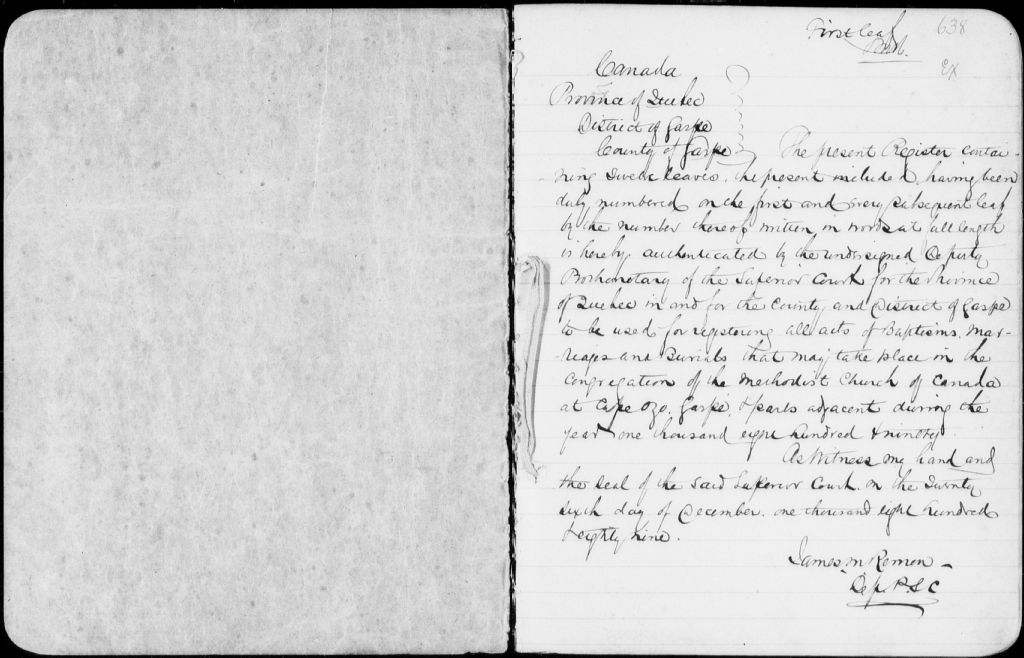 First leaf 638
Ex
Canada
Province of Quebec
District of Gaspe
County of Gaspe
The present Register contai-
ning twelve leaves, the present included, having been
duly numbered on the first and every subsequent leaf
by the number thereof written in words at full length
is hereby authenticated by the undersigned Deputy
Prothonotary of the Superior Court for the Province
of Quebec in and for the County and District of Gaspe
to be used for registering all acts of Baptisms, Mar-
riages and Burials that may take place in the
Congregation of the Methodist Church of Canada
at Cape Ozo, Gaspé, & parts adjacent during the
year one thousand eight hundred & ninety.
As Witness my hand and
the seal of the said Superior Court, on the Twenty
sixth day of December, one thousand eight hundred
& eighty nine.
James M Remon
Dep. P.S.C